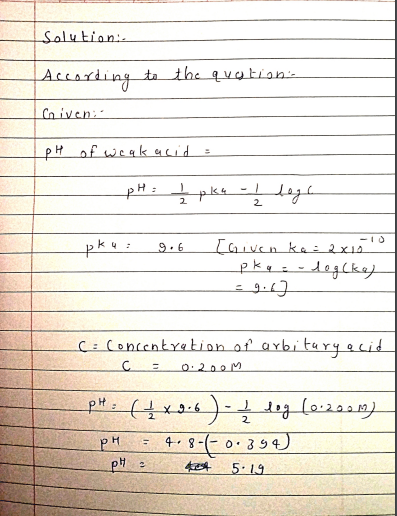 Solution:-
According to the quation:-
Given:-
pH of weak acid =
pH = 1/2 pka - 1/2 log C
pka = 9.6 [Given ka = 2x10^-10
pka = -log(ka)
= 9.6]
C = Concentration of arbitary acid
C = 0.200M
pH = (1/2 x 9.6) - 1/2 log (0.200M)
pH = 4.8-(-0.394)
pH = 5.19